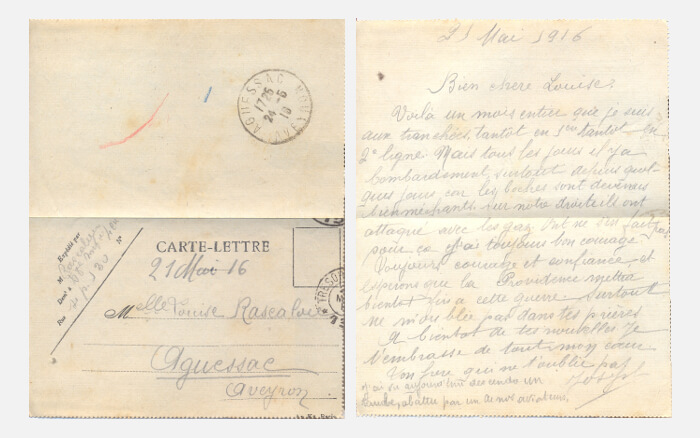 AGUESSAC
AVEYRON
17 25
24 -5
16
Expédié par
M
Dont
Rue
N°
CARTE-LETTRE
21 Mai 16
Melle Louise Rascalou
Aguessac
Aveyron
TRESOR
21 Mai 1916
Bien chère Louise,
Voilà un mois entier que je suis
aux tranchées, tantôt en 1ère tantôt en
2e ligne. Mais tous les jours il y a
bombardement, surtout depuis quel-
ques jours car les boches sont devenus
bien méchants. sur notre droite ils ont
attaqué avec les gaz. On ne s'en fait pas
pour ça et j'ai toujours bon courage
Toujours courage et confiance et
espérons que la Providence mettra
bientôt fin a cette guerre. Surtout
ne m'oublie pas dans tes prières
A bientot de tes nouvelles Je
t'embrasse de tout mon cœur
Ton frère qui ne t'oublie pas
Joseph
j'ai vu aujourd'hui descendre un
boche, abattu par un de nos aviateurs.